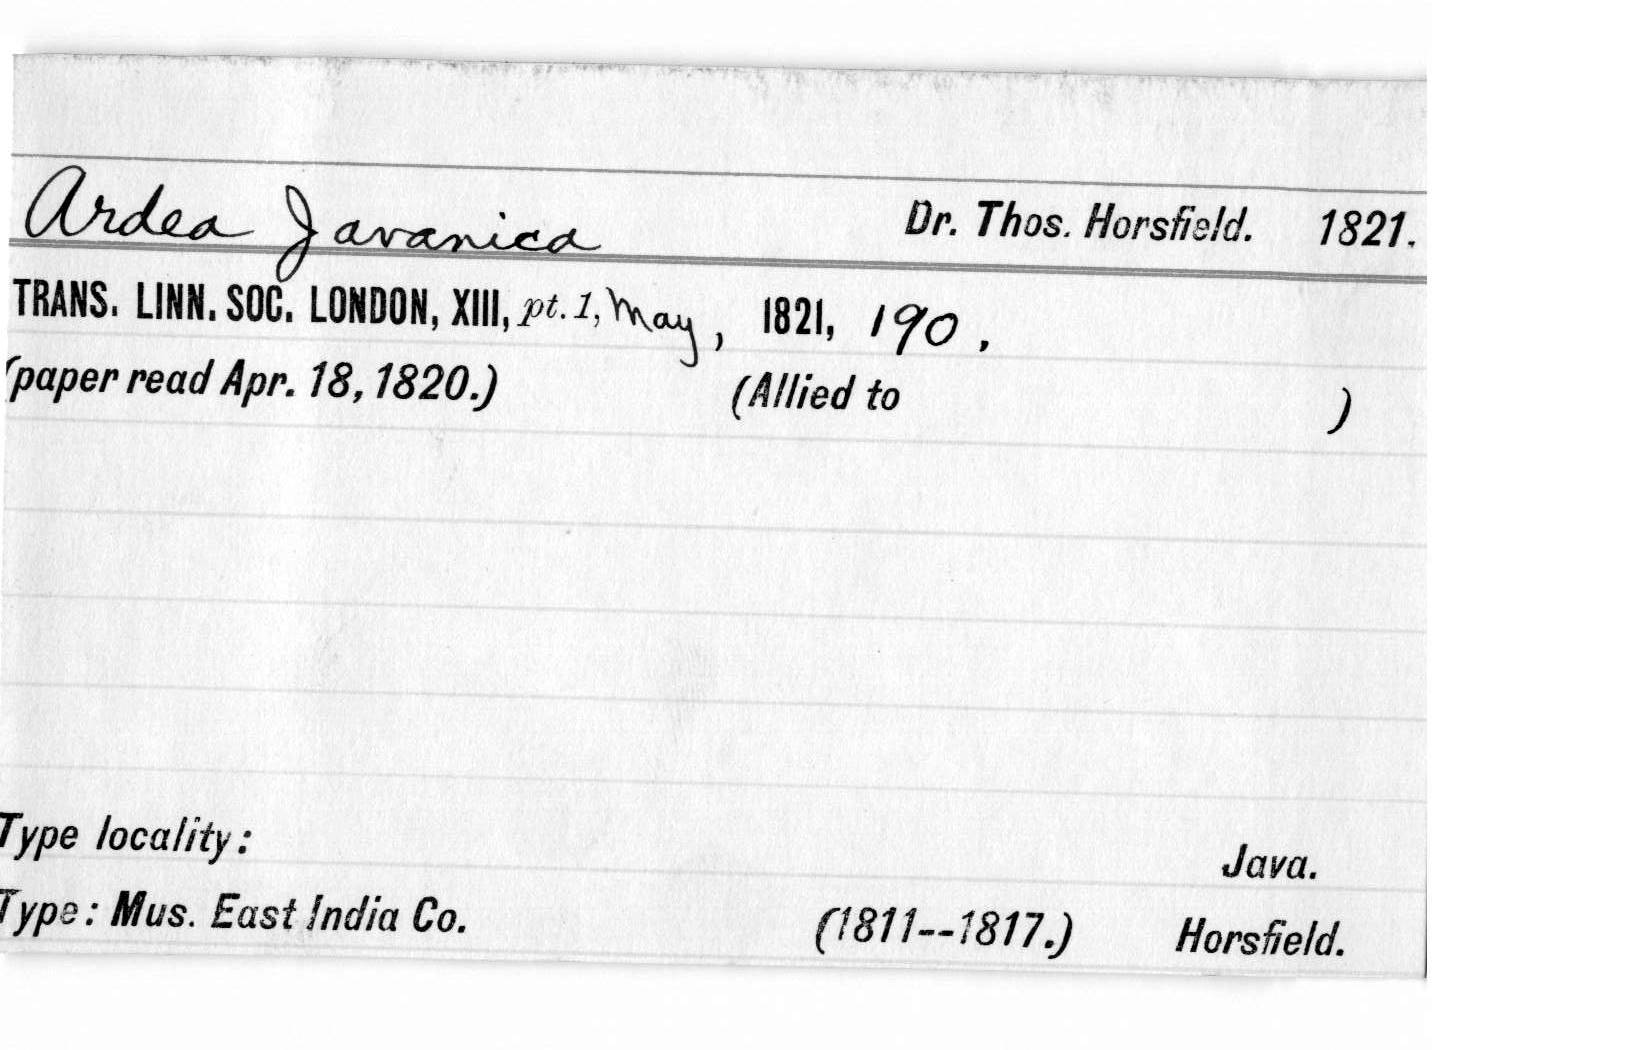 Ardea Javanica Dr. Thos. Horsfield. 1821.
TRANS. LINN. SOC. LONDON, XIII, pt. 1, May, 1821, 190.
(paper read Apr. 18, 1820.) (Allied to )
Type locality: Java.
Type: Mus. East India Co. (1811--1817.) Horsfield.